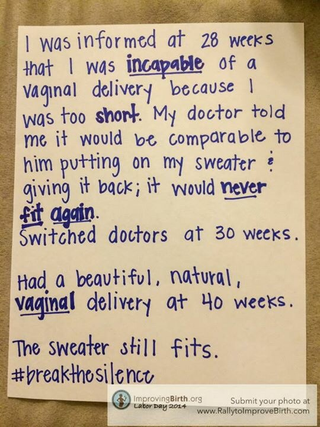 I was informed at 28 weeks
that I was incapable of a
vaginal delivery because I
was too short. My doctor told
me it would be comparable to
him putting on my sweater &
giving it back; it would never
fit again.
Switched doctors at 30 weeks.
Had a beautiful, natural,
vaginal delivery at 40 weeks.
The sweater still fits.
#breakthesilence
ImprovingBirth.org
Labor Day 2014
Submit your photo at
www.RallytoImproveBirth.com